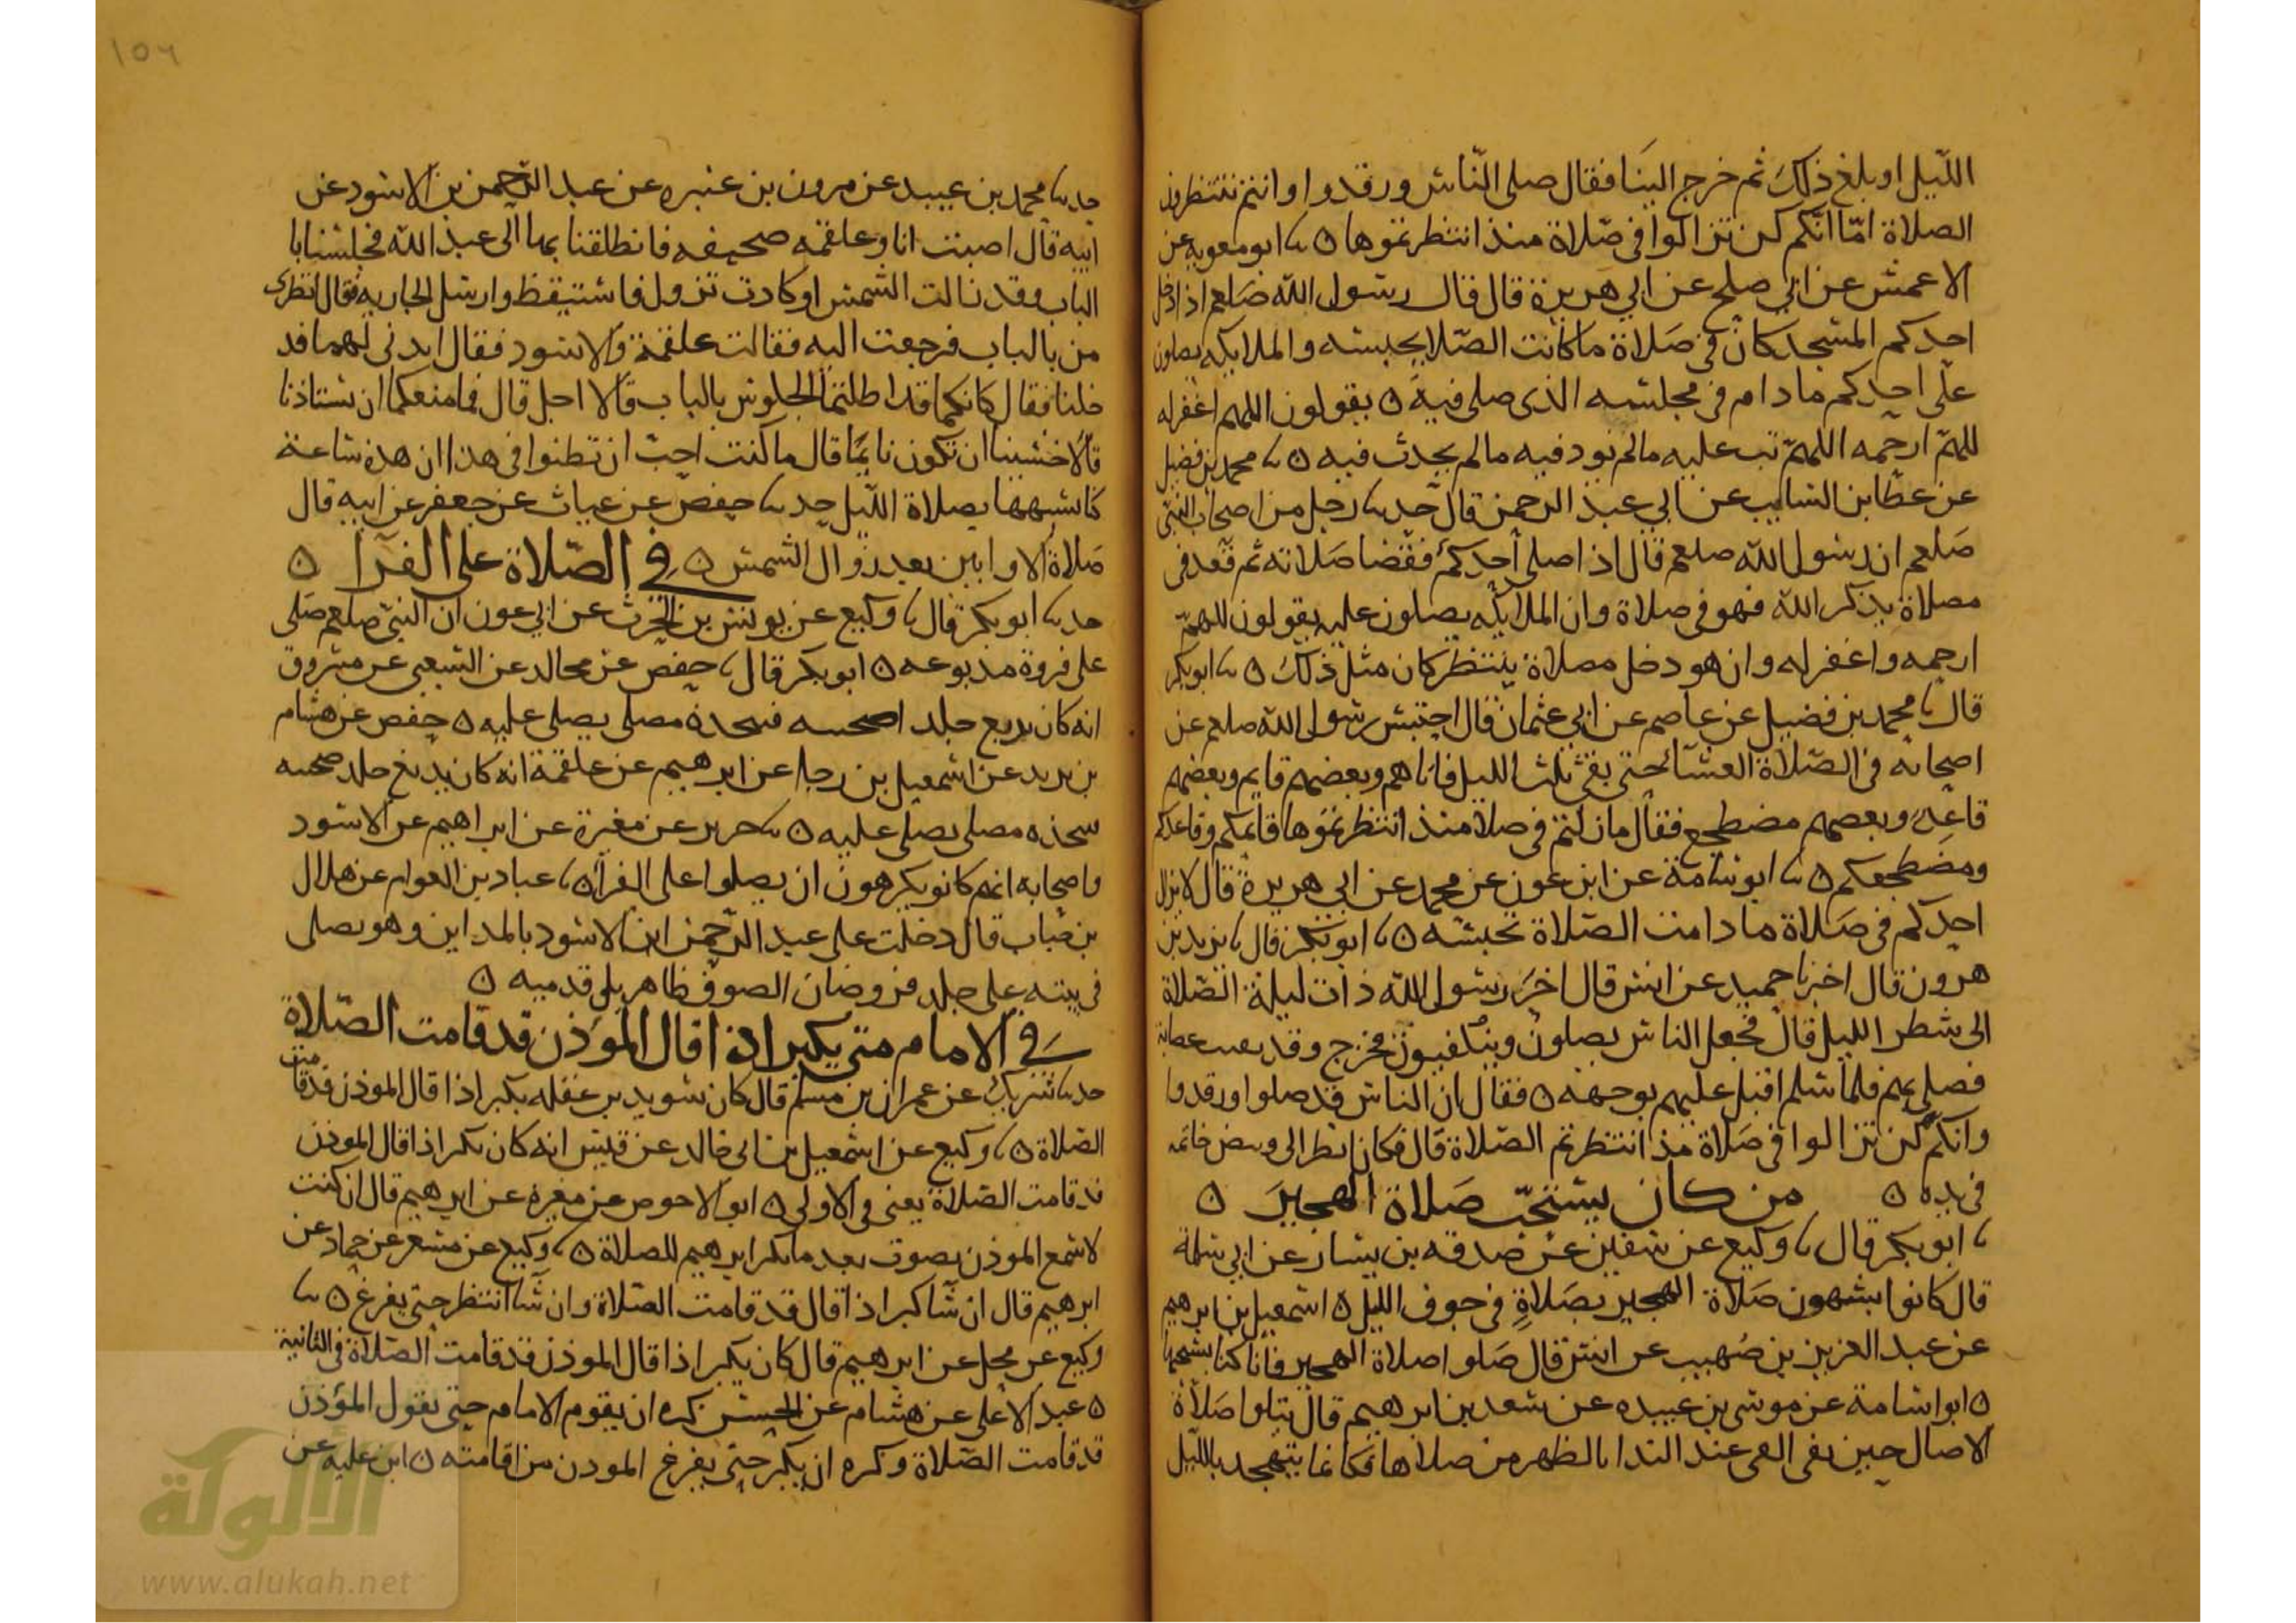 الليل او بلغ ذلك ثم خرج الينا فقال صلى الناس ورقدوا وانتم تنتظرون
الصلاة امّا انكم لن تزالوا في صلاة منذ انتظرتموها ٥ ثنا ابو معوية عن
الاعمش عن ابي صلح عن ابي هريرة قال قال رسول الله صلعم اذا دخل
احدكم المسجد كان في صلاة ما كانت الصلا تحبسه والملايكه يصلون
على احدكم ما دام في مجلسه الذي صلى فيه ٥ يقولون اللهم اغفر له
للهمّ ارحمه اللهمّ تب عليه مالم يوذ فيه مالم يحدث فيه ٥ ثنا محمد بن فضيل
عن عطا بن السايب عن ابي عبد الرحمن قال حدثنا رجل من اصحاب النبي
صلعم ان رسول الله صلعم قال اذا صلى احدكم فقضا صلاته ثم قعد في
مصلاة يذكر الله فهو في صلاة وان الملايكه يصلون عليه يقولون للهمّ
ارحمه واغفر له وان هو دخل مصلاة ينتظر كان مثل ذلك ٥ ثنا ابو بكر
قال ثنا محمد بن فضيل عن عاصم عن ابي عثمان قال احتبس رسول الله صلعم عن
اصحابه في الصلاة العشا حتى بقى ثلث الليل فاتاهم وبعضهم قايم وبعضهم
قاعد وبعضهم مضطجع فقال مازلتم في صلاة منذ انتظرتموها قائمكم وقاعدكم
ومضطجعكم ٥ ثنا ابو سامة عن ابن عون عن محمد عن ابي هريرة قال لا يزال
احدكم في صلاة ما دامت الصلاة تحبسه ٥ ثنا ابو بكر قال ثنا يزيد بن
هرون قال اخبرنا حميد عن انس قال اخر رسول الله ذات ليلة الصلاة
الى شطر الليل قال فجعل الناس يصلون وينكفيون فخرج وقد بقيت عصابة
فصلى بهم فلما سلم اقبل عليهم بوجهه ٥ فقال ان الناس قد صلوا ورقدوا
وانكم لن تزالوا في صلاة مذ انتظرتم الصلاة قال فكان انظر الى وبيض خاتمه
في يده ٥ من كان يستحبّ صلاة الهجير ٥
ثنا ابو بكر قال ثنا وكيع عن سفين عن صدقه بن يسار عن ابي سلمة
قال كانوا يشبهون صلاة الهجير بصلاةٍ في جوف الليل ٥ اسمعيل بن ابرهيم
عن عبد العزيز بن صُهيب عن انس قال صلوا صلاة الهجير فانا كنا نستحبها
٥ ابو اسامة عن موسى بن عبيده عن سعد بن ابرهيم قال تتلوا صلاة
الاصال حين يفى الفى عند الندا بالظهر من صلاها فكانما يتهجد بالليل
١٥٦
حدثنا محمد بن عبيد عن هرون بن عنبره عن عبد الرحمن بن الاسود عن
ابيه قال اصبت انا وعلقمه صحيفه فانطلقنا بها الى عبد الله فجلسنا با
الباب وقد زالت الشمس او كادت تزول فاستيقظ وارسل الجاريه فقال انظرى
من بالباب فرجعت اليه فقالت علقمة والاسود فقال ايذني لهما فد
خلنا فقال كانكما قد اطلتما الجلوس بالباب قالا اجل قال فما منعكما ان تستاذنا
قالا خشينا ان تكون نايمًا قال ما كنت احبّ ان تظنوا في هذا ان هذه ساعة
كنا نشبهها بصلاة الليل حدثنا حفص عن غياث عن جعفر عن ابيه قال
صلاة الاوابين بعد زوال الشمس ٥ في الصّلاة على الفرا ٥
حدثنا ابو بكر قال ثنا وكيع عن يونس بن الحرث عن ابي عون ان النبي صلعم صلى
على فروة مدبوغه ٥ ابو بكر قال ثنا حفص عن مجالد عن الشعبي عن مسروق
انه كان يدبغ جلد اضحيته فيتخذه مصلى يصلى عليه ٥ حفص عن هشام
بن يزيد عن اسمعيل بن رجا عن ابرهيم عن علقمة انه كان يدبغ جلد ضحيته
يتخذه مصلى يصلى عليه ٥ ثنا جرير عن مغيرة عن ابراهيم عن الاسود
واصحابه انهم كانو يكرهون ان يصلوا على الفرا ٥ ثنا عباد بن العوام عن هلال
بن خباب قال دخلت على عبد الرحمن ابن الاسود بالمداين وهو يصلى
في بيته على جلد فرو ضان الصوف ظاهر يلى قدميه ٥
في الامام متى يكبر اذا قال الموذن قد قامت الصّلاة
حدثنا شريك عن عمران بن مسلم قال كان سويد بن غفله يكبر اذا قال الموذن قد قامت
الصلاة ٥ ثنا وكيع عن اسمعيل بن ابي خالد عن قيس انه كان يكبر اذا قال الموذن
قد قامت الصلاة يعنى في الاولى ٥ ابو الاحوص عن مغيرة عن ابرهيم قال ان كنت
لاسمع الموذن يصوت بعد ما يكبر ابرهيم للصلاة ٥ ثنا وكيع عن مسعر عن حماد عن
ابرهيم قال ان شآ كبر اذا قال قد قامت الصلاة وان شآ انتظر حتى يفرغ ٥ ثنا
وكيع عن محل عن ابرهيم قال كان يكبر اذا قال الموذن قد قامت الصلاة في الثانية
٥ عبد الاعلى عن هشام عن الحسن كره ان يقوم الامام حتى يقول المؤذن
قد قامت الصلاة وكره ان يكبر حتى يفرغ الموذن من اقامته ٥ ابن عليه عن
الألوكة
www.alukah.net